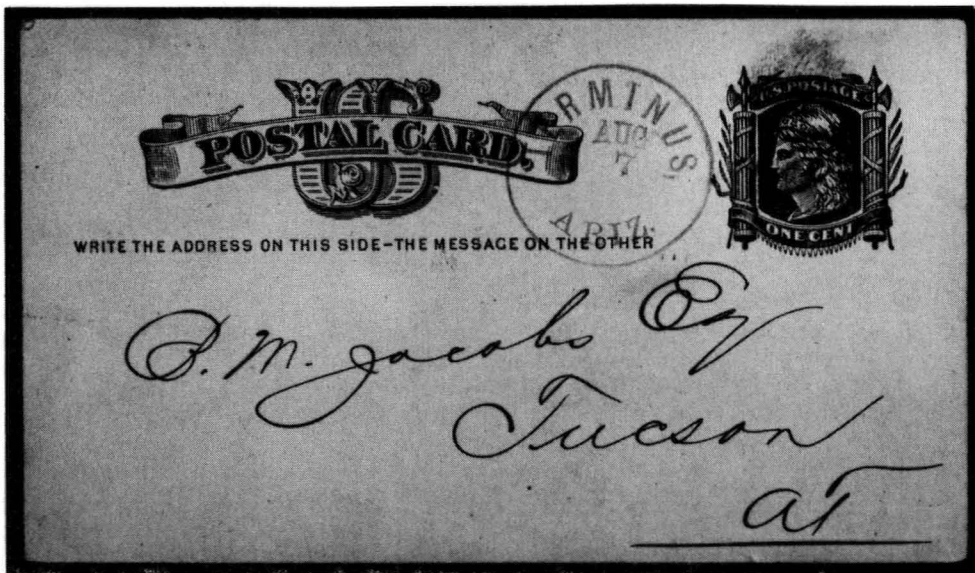 US
POSTAL CARD.
TERMINUS,
AUG
7
ARIZ.
U.S. POSTAGE
ONE CENT
WRITE THE ADDRESS ON THIS SIDE–THE MESSAGE ON THE OTHER
B. M. Jacobs Eq
Tucson
AT